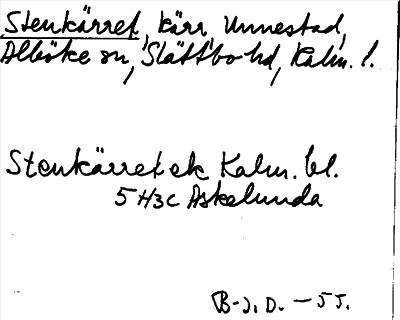 Stenkärret, kärr, Unnestad,
Alböke sn, Slättbo hd, Kalm. l.
Stenkärret ek Kalm. bl.
5 H3c Askelunda
B-J. D. - 55.